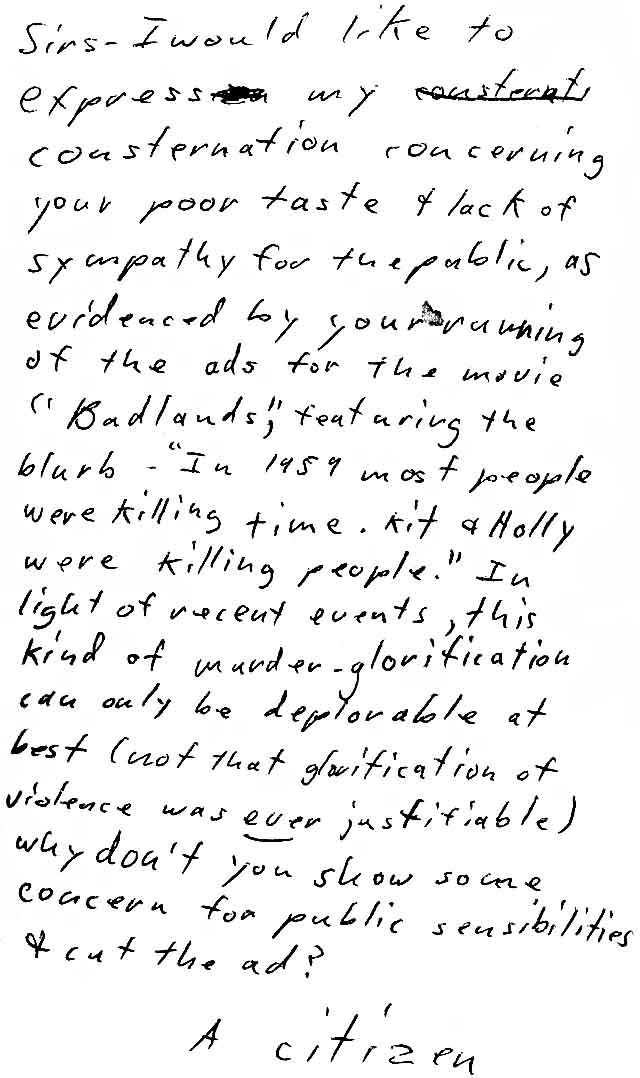 Sirs- I would like to
express my consternat
consternation concerning
your poor taste & lack of
sympathy for the public, as
evidenced by your running
of the ads for the movie
"Badlands," featuring the
blurb - "In 1959 most people
were killing time. Kit & Holly
were killing people." In
light of recent events, this
kind of murder-glorification
can only be deplorable at
best (not that glorification of
violence was ever justifiable)
why don't you show some
concern for public sensibilities
& cut the ad?
A citizen